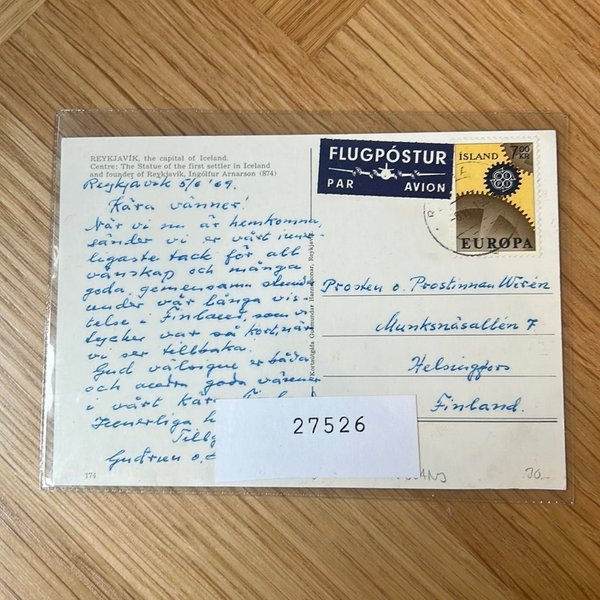 REYKJAVÍK, the capital of Iceland.
Centre: The Statue of the first settler in Iceland
and founder of Reykjavík, Ingólfur Arnarson (874)
Reykjavik 5/6 '69.
Kära vänner!
När vi nu är hemkomna
sänder vi er vårt inner-
ligaste tack för all
vänskap och många
goda gemensamma stunder
under vår långa vis-
telse i Finland, som vi
tycker var så kort, när
vi ser tillbaka.
Gud välsigne er båda
och andra goda vänner
i vårt kära
Innerliga
Gudrun o.
174
Kortaútgáfa Guðmundar Hannessonar, Reykjavík
FLUGPÓSTUR
PAR AVION
ÍSLAND 7.00 KR
EUROPA
Prosten o. Prostinnan Wirén
Munksnäsallén 7
Helsingfors
Finland.
27526